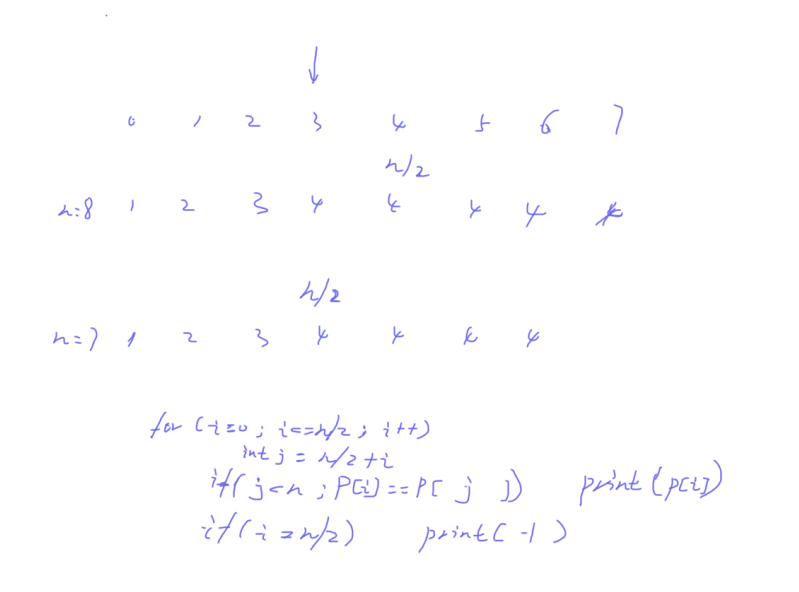 0 1 2 3 4 5 6 7
n/2
n=8 1 2 3 4 4 4 4 4
n/2
n=7 1 2 3 4 4 4 4
for (i=0; i<=n/2; i++)
int j = n/2+i
if( j<n ; P[i]==P[ j ]) print(P[i])
if(i=n/2) print( -1 )